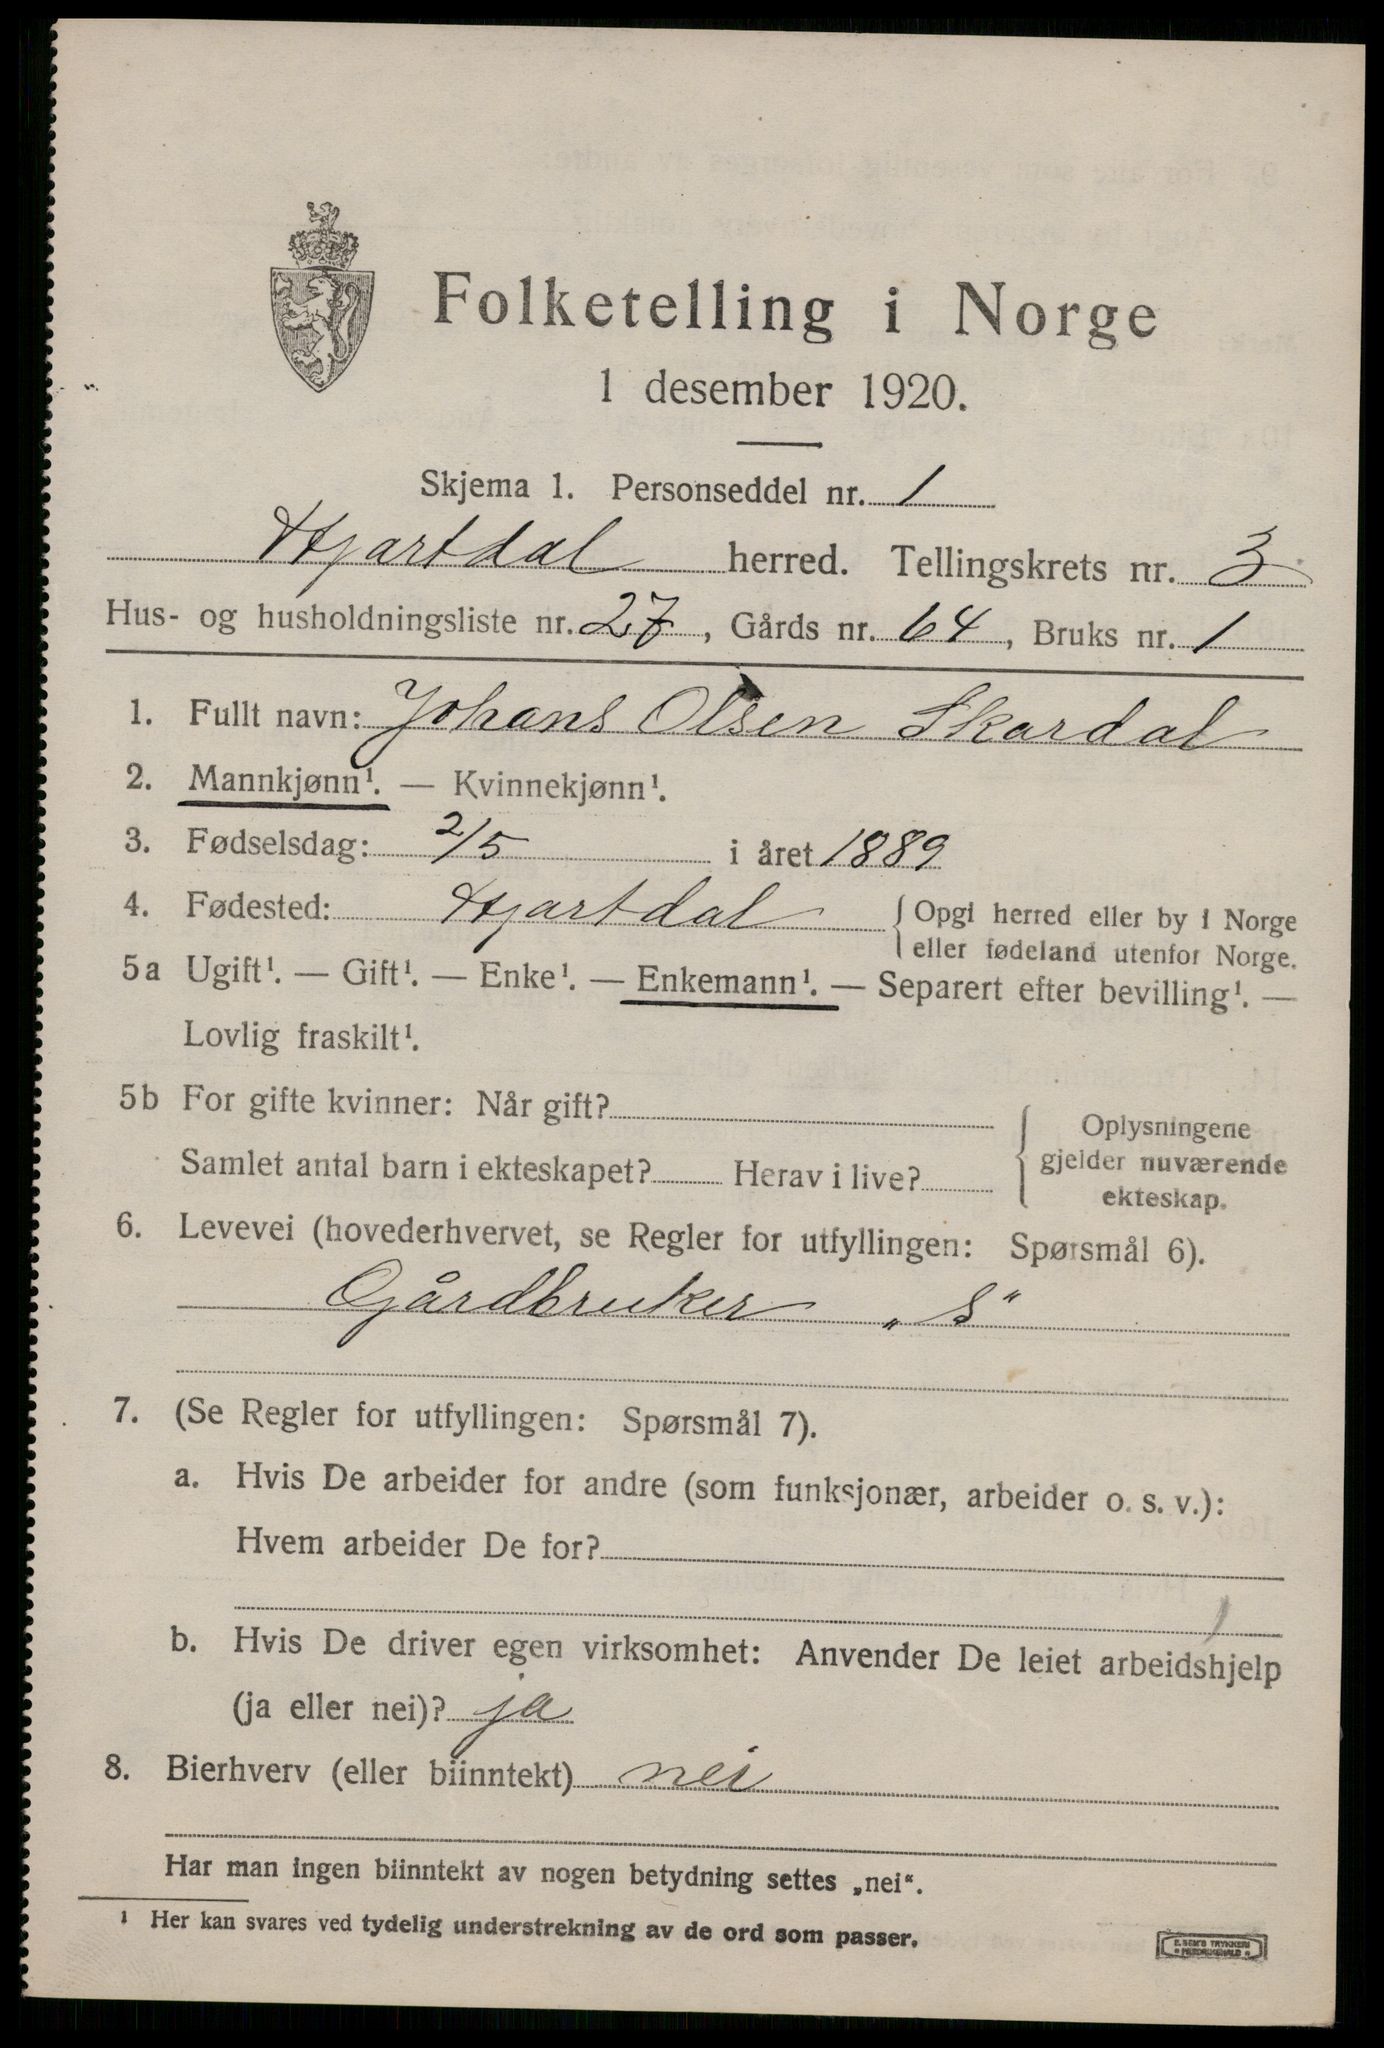 Folketelling i Norge
1 desember 1920.
Skjema 1. Personseddel nr. 1
Hjartdal herred. Tellingskrets nr. 3
Hus- og husholdningsliste nr. 27, Gårds nr. 64, Bruks nr. 1
1. Fullt navn: Johans Olsen Skardal
2. Mannkjønn¹. — Kvinnekjønn¹.
3. Fødselsdag: 2/5 i året 1889
4. Fødested: Hjartdal { Opgi herred eller by i Norge
eller fødeland utenfor Norge.
5a Ugift¹. — Gift¹. — Enke¹. — Enkemann¹. — Separert efter bevilling¹. —
Lovlig fraskilt¹.
5b For gifte kvinner: Når gift?
Samlet antal barn i ekteskapet? Herav i live?
Oplysningene
gjelder nuværende
ekteskap.
6. Levevei (hovederhvervet, se Regler for utfyllingen: Spørsmål 6).
Gårdbruker „S“
7. (Se Regler for utfyllingen: Spørsmål 7).
a. Hvis De arbeider for andre (som funksjonær, arbeider o. s. v.):
Hvem arbeider De for?
b. Hvis De driver egen virksomhet: Anvender De leiet arbeidshjelp
(ja eller nei)? ja
8. Bierhverv (eller biinntekt) nei
Har man ingen biinntekt av nogen betydning settes „nei“.
¹ Her kan svares ved tydelig understrekning av de ord som passer.
E. SEM'S TRYKKERI
FREDRIKSHALD